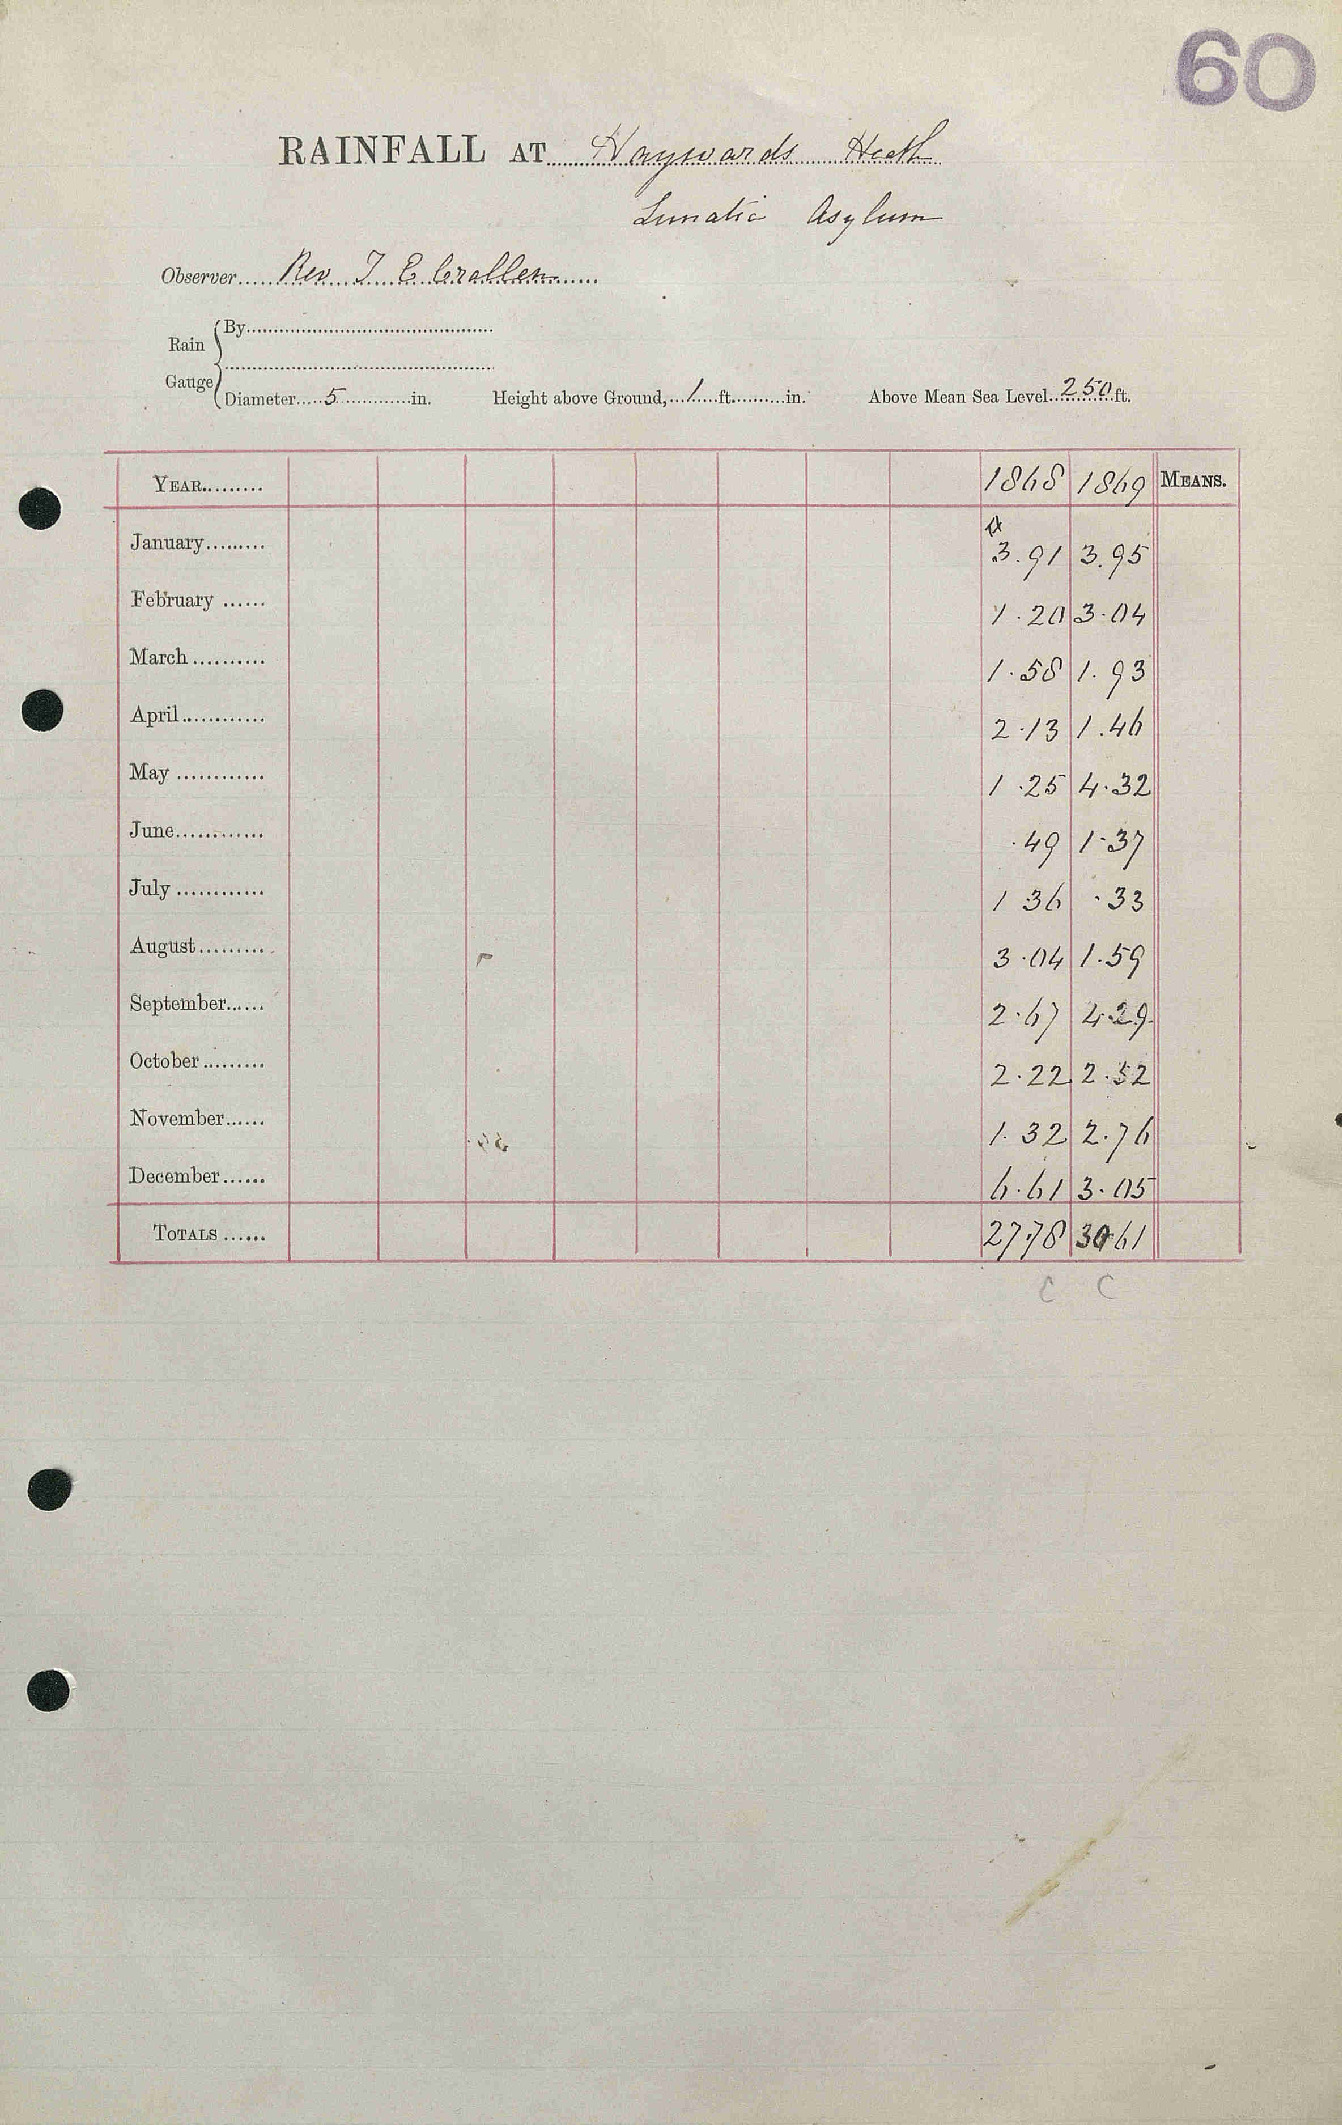 60
RAINFALL AT Haywards Heath
Lunatic Asylum
Observer Rev. T E Crallen
Rain Gauge { By
Diameter 5 in. Height above Ground, 1 ft. in. Above Mean Sea Level 250 ft.
YEAR 1868 1869 MEANS.
January 3.91 3.95
February 1.20 3.04
March 1.58 1.93
April 2.13 1.46
May 1.25 4.32
June .49 1.37
July 1 36 .33
August 3.04 1.59
September 2.67 4.29
October 2.22 2.52
November 1.32 2.76
December 6.61 3.05
TOTALS 27.78 30.61
C C